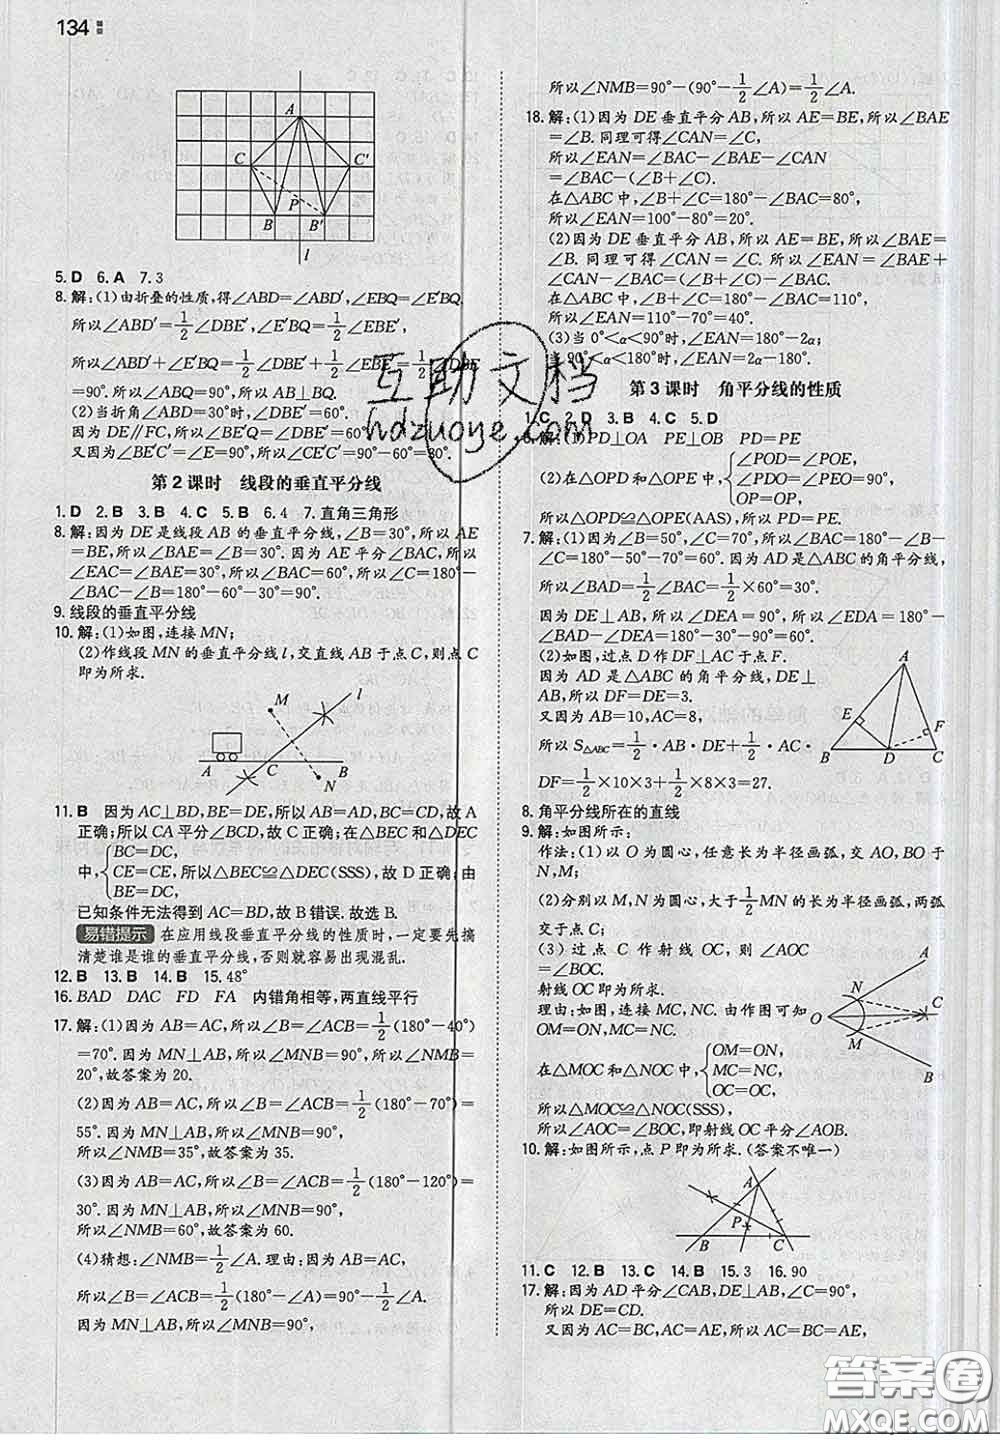 134
A
C
C′
P
B
B′
l
5. D　6. A　7. 3
8. 解:(1)由折叠的性质,得∠ABD=∠ABD′,∠EBQ=∠E′BQ.
所以∠ABD′=1/2∠DBE′,∠E′BQ=1/2∠EBE′,
所以∠ABD′+∠E′BQ=1/2∠DBE′+1/2∠EBE′=1/2∠DBE
=90°.所以∠ABQ=90°.所以AB⊥BQ.
(2)当折角∠ABD=30°时,∠DBE′=60°.
因为DE∥FC,所以∠BE′Q=∠DBE′=60°.
又因为∠BE′C′=∠E=90°,所以∠CE′C′=90°-60°=30°.
第2课时　线段的垂直平分线
1. D　2. B　3. B　4. C　5. B　6. 4　7. 直角三角形
8. 解:因为DE是线段AB的垂直平分线,∠B=30°,所以AE
=BE,所以∠BAE=∠B=30°.因为AE平分∠BAC,所以
∠EAC=∠BAE=30°,所以∠BAC=60°,所以∠C=180°-
∠BAC-∠B=180°-60°-30°=90°.
9. 线段的垂直平分线
10. 解:(1)如图,连接MN;
(2)作线段MN的垂直平分线l,交直线AB于点C,则点C
即为所求.
M
l
A
C
B
N
11. B　因为AC⊥BD,BE=DE,所以AB=AD,BC=CD,故A
正确;所以CA平分∠BCD,故C正确;在△BEC和△DEC
中,{BC=DC,
CE=CE,所以△BEC≌△DEC(SSS),故D正确;由
BE=DE,
已知条件无法得到AC=BD,故B错误.故选B.
易错提示　在应用线段垂直平分线的性质时,一定要先搞
清楚谁是谁的垂直平分线,否则就容易出现混乱.
12. B　13. B　14. B　15. 48°
16. BAD　DAC　FD　FA　内错角相等,两直线平行
17. 解:(1)因为AB=AC,所以∠B=∠ACB=1/2(180°-40°)
=70°.因为MN⊥AB,所以∠MNB=90°,所以∠NMB=
20°,故答案为20.
(2)因为AB=AC,所以∠B=∠ACB=1/2(180°-70°)=
55°.因为MN⊥AB,所以∠MNB=90°,
所以∠NMB=35°,故答案为35.
(3)因为AB=AC,所以∠B=∠ACB=1/2(180°-120°)=
30°.因为MN⊥AB,所以∠MNB=90°,
所以∠NMB=60°,故答案为60.
(4)猜想:∠NMB=1/2∠A.理由:因为AB=AC,
所以∠B=∠ACB=1/2(180°-∠A)=90°-1/2∠A.
因为MN⊥AB,所以∠MNB=90°,
所以∠NMB=90°-(90°-1/2∠A)=1/2∠A.
18. 解:(1)因为DE垂直平分AB,所以AE=BE,所以∠BAE
=∠B.同理可得∠CAN=∠C,
所以∠EAN=∠BAC-∠BAE-∠CAN
=∠BAC-(∠B+∠C).
在△ABC中,∠B+∠C=180°-∠BAC=80°,
所以∠EAN=100°-80°=20°.
(2)因为DE垂直平分AB,所以AE=BE,所以∠BAE=
∠B.同理可得∠CAN=∠C.所以∠EAN=∠BAE+
∠CAN-∠BAC=(∠B+∠C)-∠BAC.
在△ABC中,∠B+∠C=180°-∠BAC=110°,
所以∠EAN=110°-70°=40°.
(3)当0°<α<90°时,∠EAN=180°-2α;
90°<α<180°时,∠EAN=2α-180°.
第3课时　角平分线的性质
1. C　2. D　3. B　4. C　5. D
6. 解:(1)PD⊥OA　PE⊥OB　PD=PE
(2)在△OPD和△OPE中,{∠POD=∠POE,
∠PDO=∠PEO=90°,
OP=OP,
所以△OPD≌△OPE(AAS),所以PD=PE.
7. 解:(1)因为∠B=50°,∠C=70°,所以∠BAC=180°-∠B-
∠C=180°-50°-70°=60°.因为AD是△ABC的角平分线,
所以∠BAD=1/2∠BAC=1/2×60°=30°.
因为DE⊥AB,所以∠DEA=90°,所以∠EDA=180°-
∠BAD-∠DEA=180°-30°-90°=60°.
(2)如图,过点D作DF⊥AC于点F.
因为AD是△ABC的角平分线,DE⊥
AB,所以DF=DE=3.
又因为AB=10,AC=8,
所以S△ABC=1/2·AB·DE+1/2·AC·
DF=1/2×10×3+1/2×8×3=27.
A
E
F
B
D
C
8. 角平分线所在的直线
9. 解:如图所示:
作法:(1)以O为圆心,任意长为半径画弧,交AO,BO于
N,M;
(2)分别以M,N为圆心,大于1/2MN的长为半径画弧,两弧
相交于点C;
(3)过点C作射线OC,则∠AOC
=∠BOC.
射线OC即为所求.
理由:如图,连接MC,NC.由作图可知
OM=ON,MC=NC.
在△MOC和△NOC中,{OM=ON,
MC=NC,
OC=OC,
所以△MOC≌△NOC(SSS),
所以∠AOC=∠BOC,即射线OC平分∠AOB.
A
N
O
C
M
B
10. 解:如图所示,点P即为所求.(答案不唯一)
A
P
B
C
11. C　12. B　13. C　14. B　15. 3　16. 90
17. 解:因为AD平分∠CAB,DE⊥AB,∠C=90°,
所以DE=CD.
又因为AC=BC,AC=AE,所以AC=BC=AE,
互助文档
hdzuoye.com
答案圈
MXQE.COM